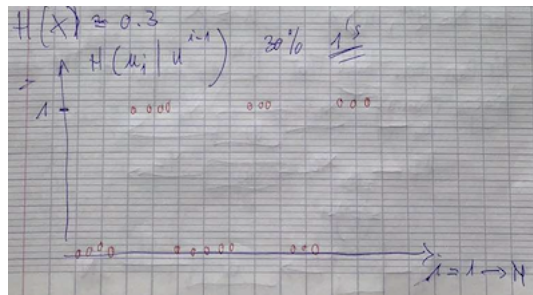 H(X) = 0.3
H(u_i | u^{i-1}) 30% 1's
1
i=1→N